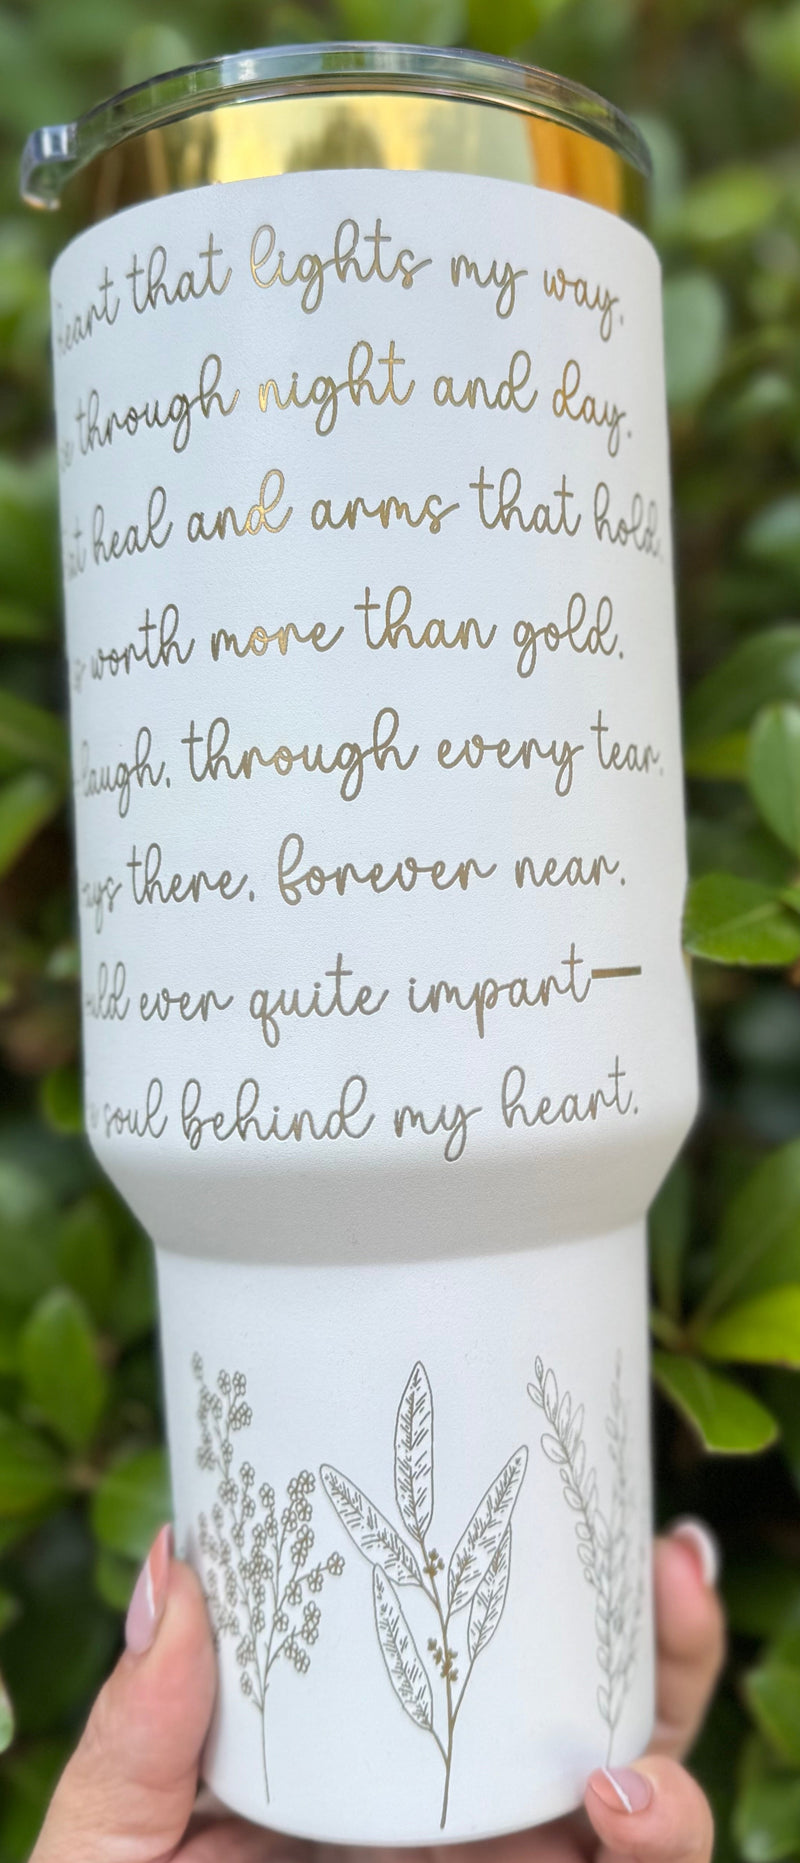 heart that lights my way.
through night and day.
heal and arms that hold.
worth more than gold.
laugh, through every tear.
there, forever near.
ever quite impart—
soul behind my heart.